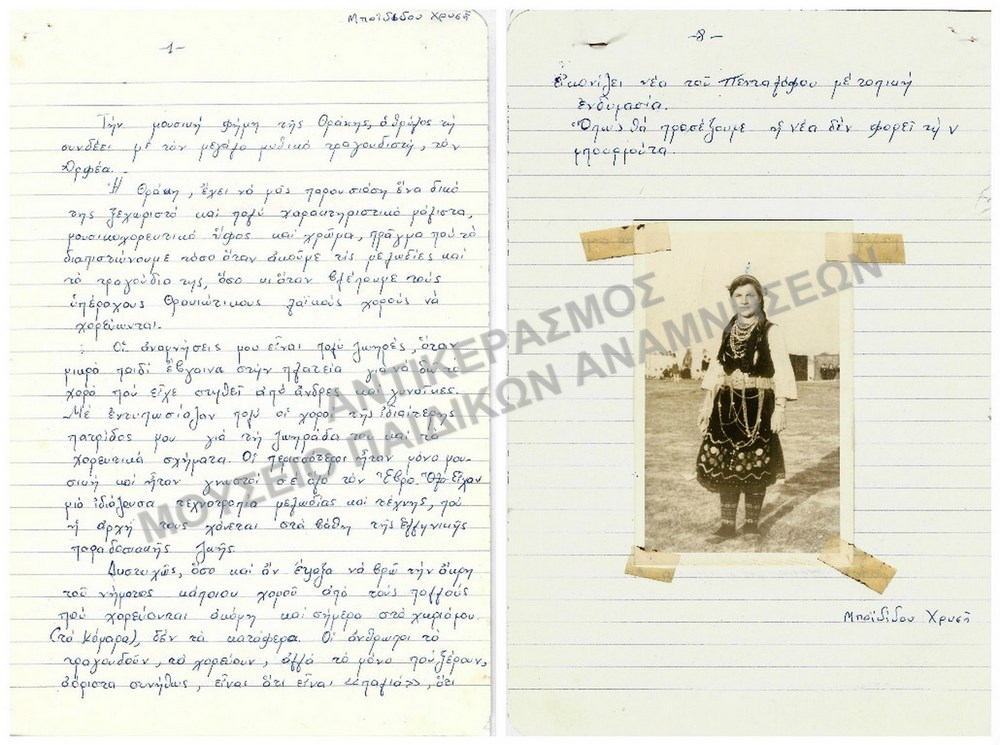 Μποϊδίδου Χρυσῆ
-1-
Τήν μουσική φήμη τῆς Θράκης, ὁ θρύλος τή
συνδέει μέ τόν μεγάλο μυθικό τραγουδιστή, τόν
Ὀρφέα.
Ἡ Θράκη, ἔχει νά μᾶς παρουσιάση ἕνα δικό
της ξεχωριστό καί πολύ χαρακτηριστικό μάλιστα,
μουσικοχορευτικό ὕφος καί χρῶμα, πρᾶγμα πού τό
διαπιστώνουμε τόσο ὅταν ἀκοῦμε τίς μελωδίες καί
τά τραγούδια της, ὅσο κι ὅταν βλέπουμε τούς
ὑπέροχους Θρακιώτικους λαϊκούς χορούς νά
χορεύωνται.
Οἱ ἀναμνήσεις μου εἶναι πολύ ζωηρές, ὅταν
μικρό παιδί ἔβγαινα στήν πλατεῖα γιά νά δῶ τό
χορό πού εἶχε στηθεῖ ἀπό ἄνδρες καί γυναῖκες.
Μέ ἐντυπωσίαζαν πολύ οἱ χοροί τῆς ἰδιαίτερης
πατρίδος μου γιά τή ζωηράδα του καί τά
χορευτικά σχήματα. Οἱ περισσότεροι ἦταν μόνο μου-
σική καί ἦταν γνωστοί σέ ὅλο τόν Ἕβρο. Ὅλα εἶχαν
μιά ἰδιάζουσα τεχνοτροπία μελωδίας καί τέχνης, πού
ἡ ἀρχή τους χάνεται στά βάθη τῆς ἑλληνικῆς
παραδοσιακῆς ζωῆς.
Δυστυχῶς, ὅσο καί ἄν ἔψαξα νά βρῶ τήν ἄκρη
τοῦ νήματος κάποιου χοροῦ ἀπό τούς πολλούς
πού χορεύονται ἀκόμη καί σήμερα στό χωριό μου.
(τά Κόμαρα), δέν τά κατάφερα. Οἱ ἄνθρωποι τό
τραγουδοῦν, τό χορεύουν, ἀλλά τό μόνο πού ξέρουν,
ἀόριστα συνήθως, εἶναι ὅτι εἶναι «παλιά», ὅτι
-8-
εἰκονίζει νέα τοῦ Πενταλόφου μέ τοπική
ἐνδυμασία.
Ὅπως θά προσέξουμε ἡ νέα δέν φορεῖ τήν
μπουρμούτα.
Μποϊδίδου Χρυσῆ
ΑΝΤΙΚΕΡΑΣΜΟΣ
ΜΟΥΣΕΙΟ ΠΑΙΔΙΚΩΝ ΑΝΑΜΝΗΣΕΩΝ